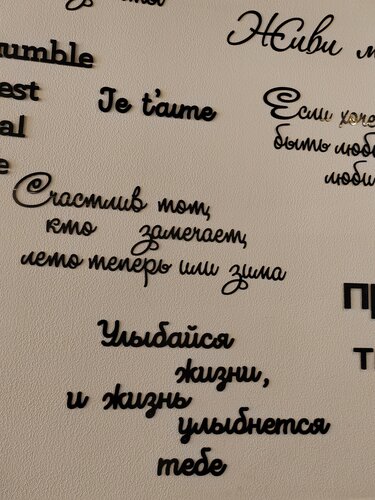 Живи м
umble
est
al
e
Je t'aime
Если хоче
быть люби
люби
Счастлив тот,
кто замечает,
лето теперь или зима
Улыбайся
жизни,
и жизнь
улыбнется
тебе